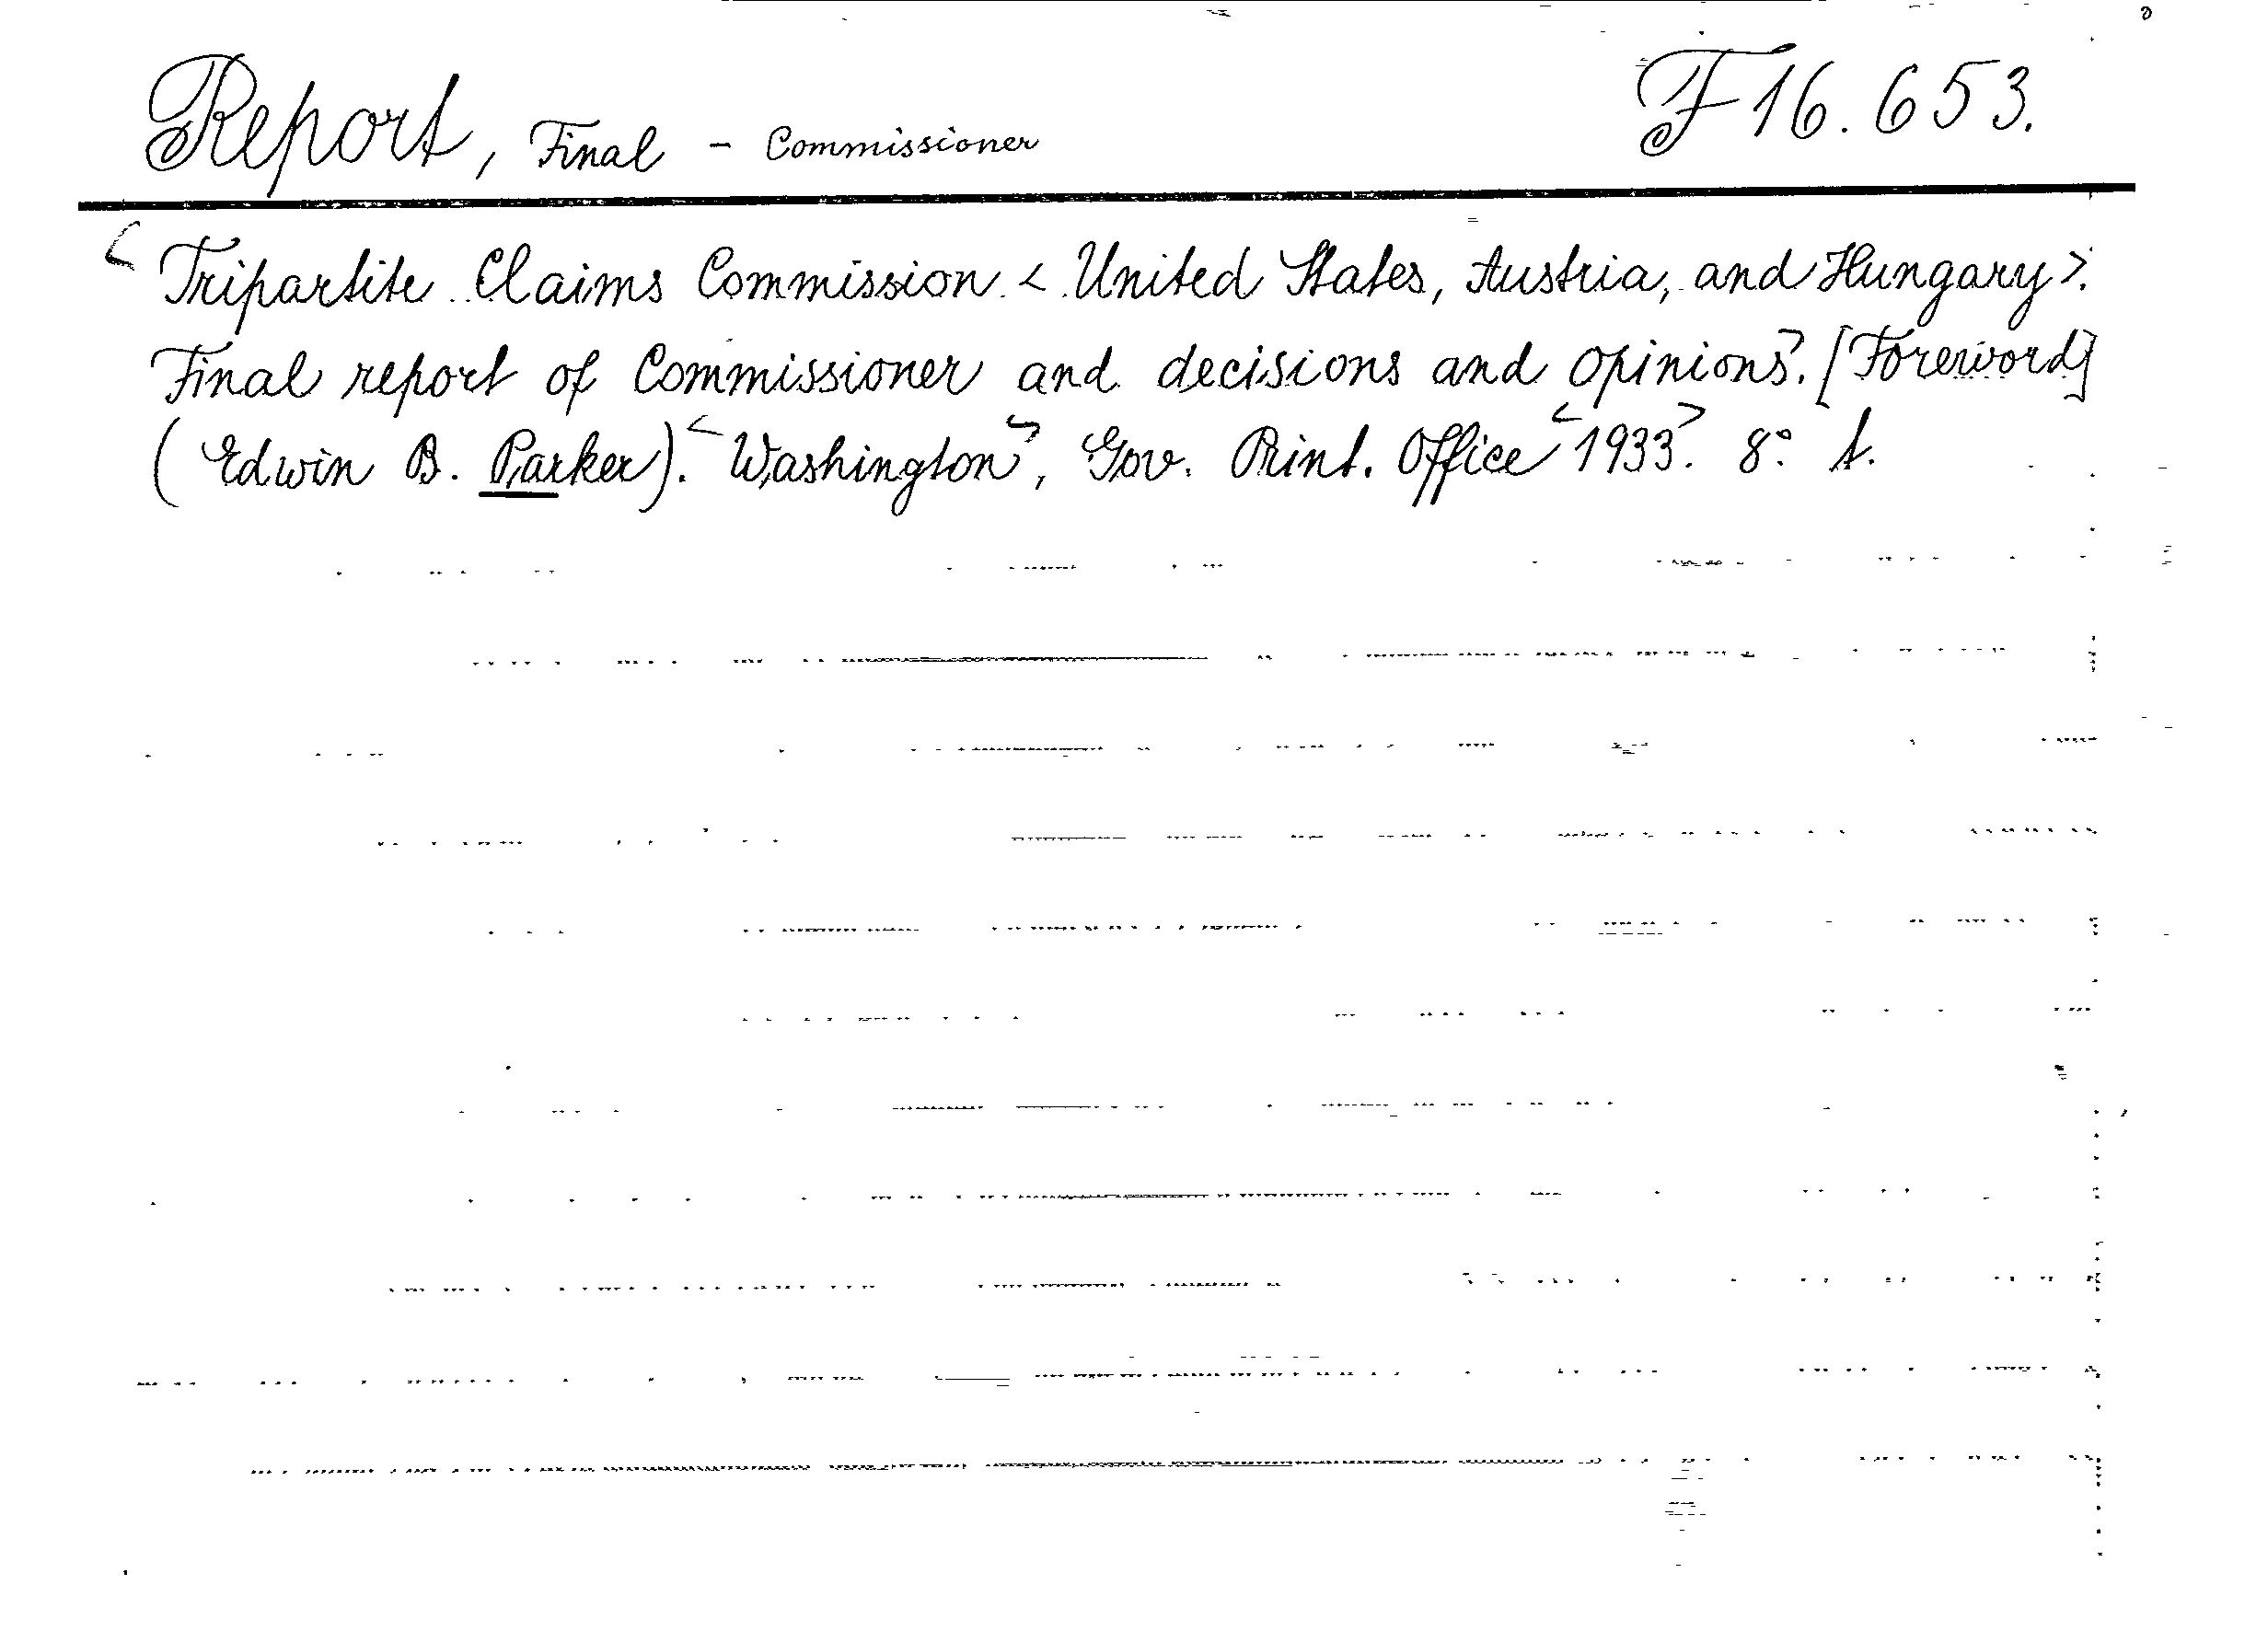 Report, Final - Commissioner F 16.653.
<Tripartite Claims Commission <United States, Austria, and Hungary>.
Final report of Commissioner and decisions and opinions>. [Foreword]
(Edwin B. Parker). <Washington>, Gov. Print. Office <1933>. 8° t.